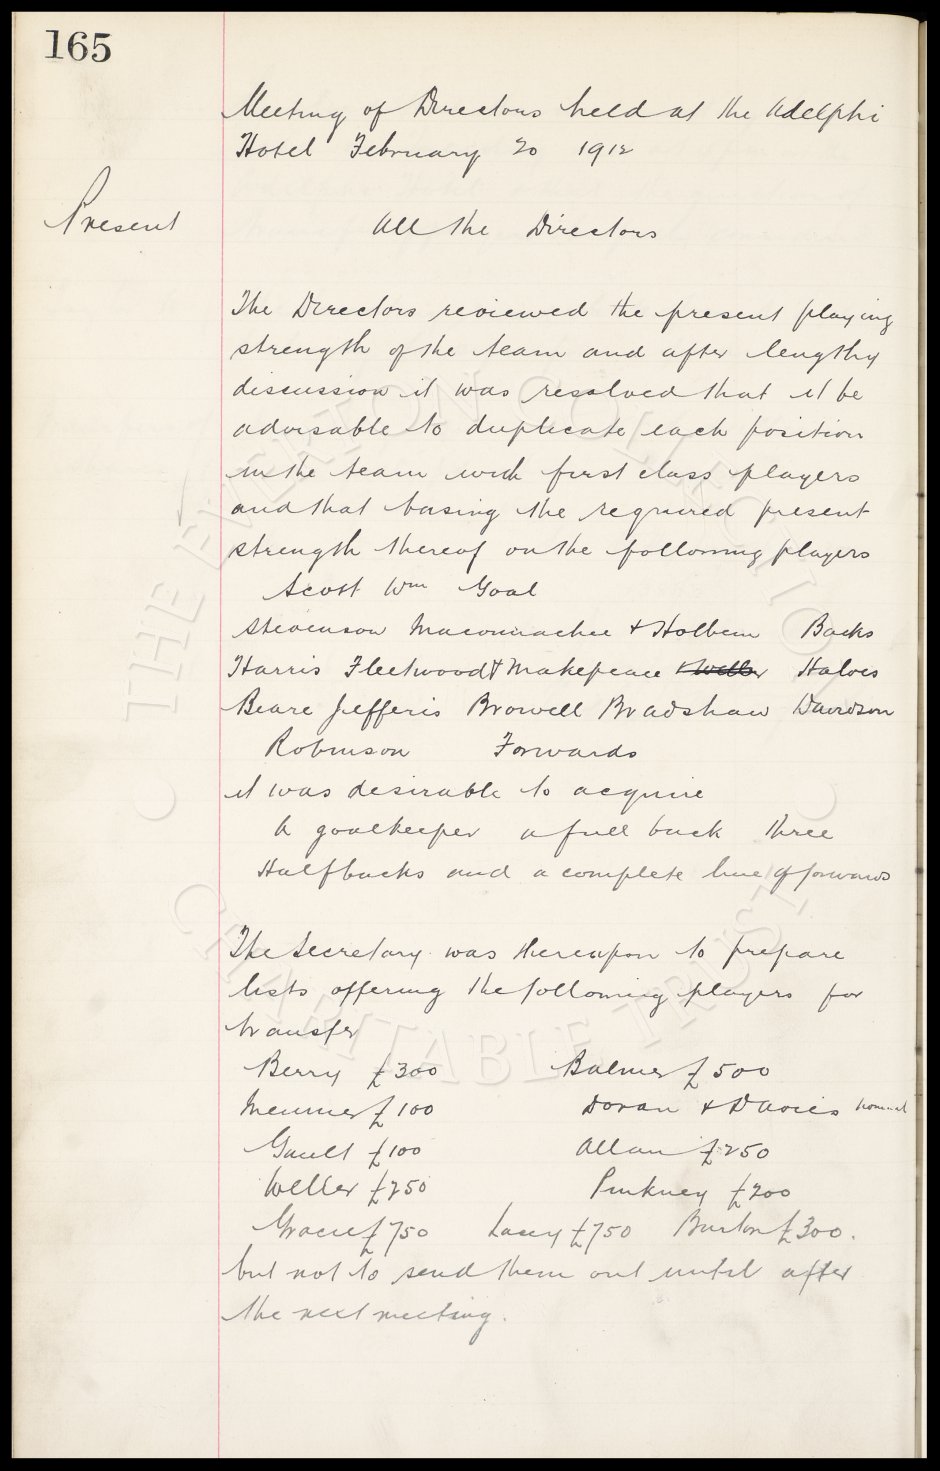 165
Meeting of Directors held at the Adelphi
Hotel February 20 1912
Present All the Directors
The Directors reviewed the present playing
strength of the team and after lengthy
discussion it was resolved that it be
advisable to duplicate each position
in the team with first class players
and that basing the required present
strength thereof on the following players
Scott Wm Goal
Stevenson Macconnachie & Holbem Backs
Harris Fleetwood & Makepeace & Weller Halves
Beare Jefferis Browell Bradshaw Davidson
Robinson Forwards
it was desirable to acquire
A goalkeeper a full back three
Halfbacks and a complete line of forwards
The Secretary was thereupon to prepare
lists offering the following players for
transfer
Berry £300 Balmer £500
Meunier £100 Doran & Davies nominal
Gault £100 Allan £250
Weller £250 Pinkney £200
Gracie £750 Lacey £750 Burton £300.
but not to send them out until after
the next meeting.
THE EVERTON COLLECTION
CHARITABLE TRUST